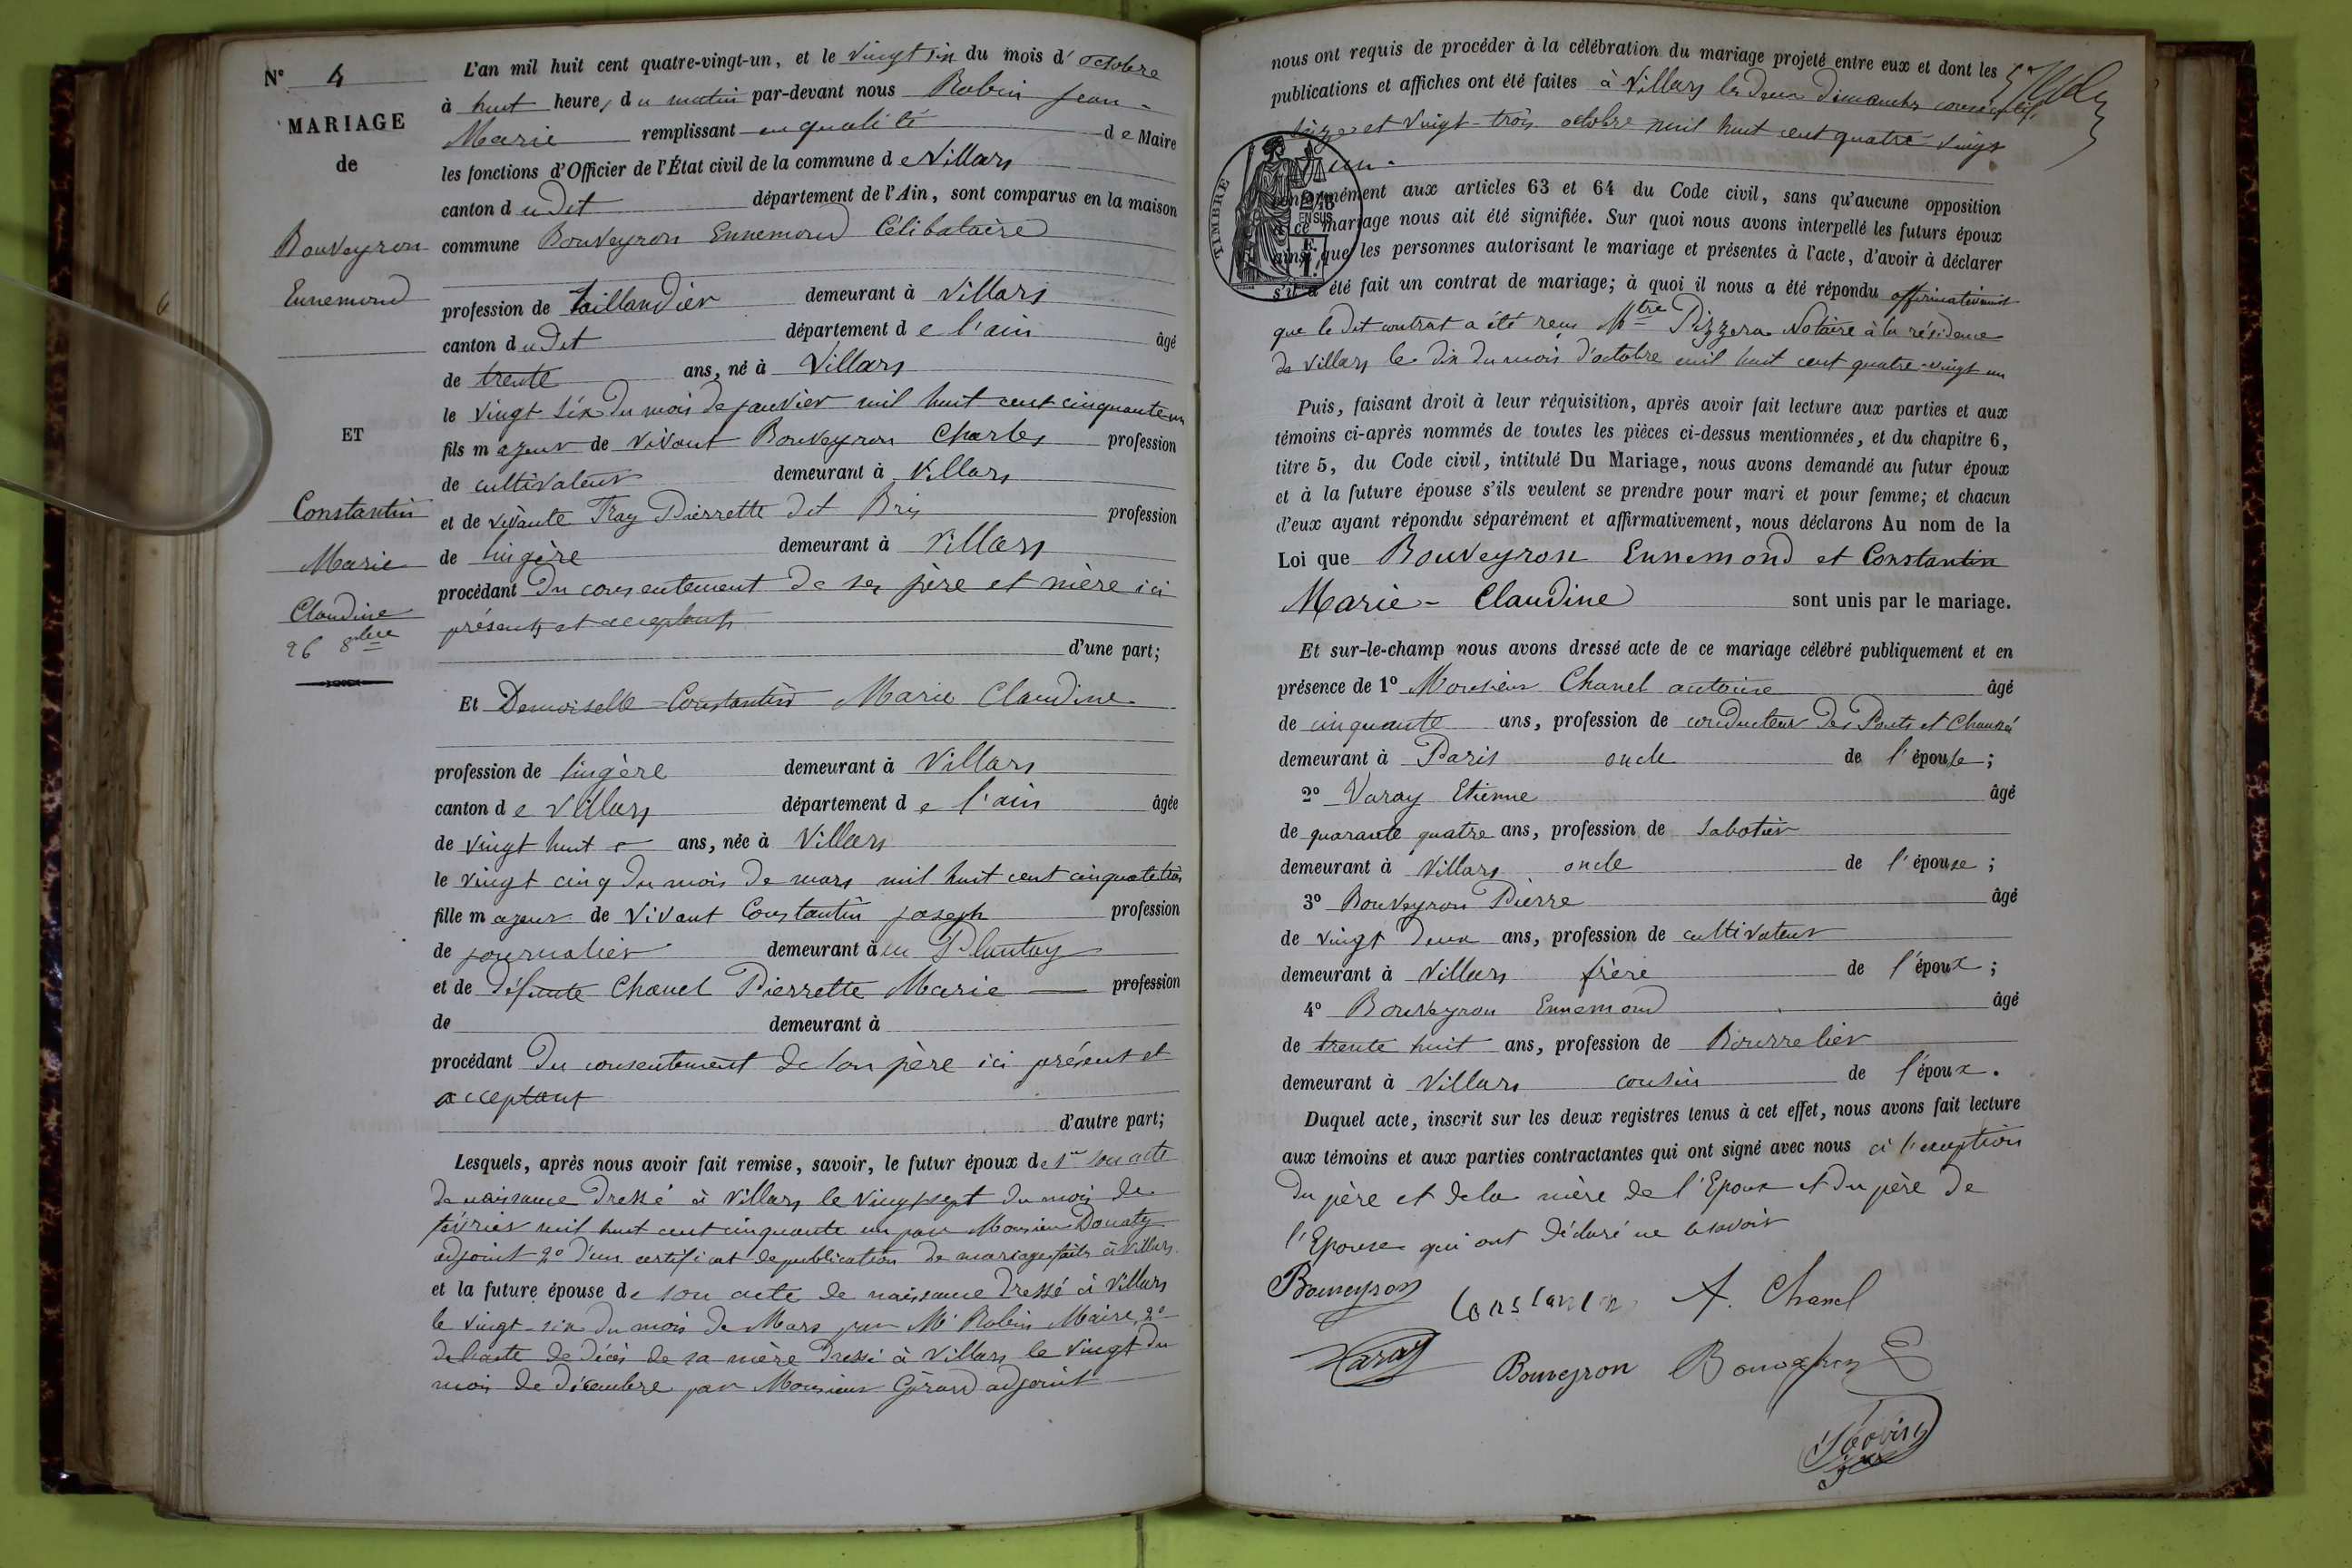 N° 4
MARIAGE
de
Bouveyron
Ennemond
ET
Constantin
Marie
Claudine
26 8bre
L'an mil huit cent quatre-vingt-un, et le vingt six du mois d'octobre
à huit heures du matin par-devant nous Robin Jean-
Marie remplissant en qualité de Maire
les fonctions d'Officier de l'État civil de la commune de Villars
canton dudit département de l'Ain, sont comparus en la maison
commune Bouveyron Ennemond Célibataire
profession de taillandier demeurant à Villars
canton dudit département de l'ain âgé
de trente ans, né à Villars
le vingt six du mois de janvier mil huit cent cinquante un
fils majeur de vivant Bouveyron Charles profession
de cultivateur demeurant à Villars
et de vivante Fray Pierrette dit Bris profession
de lingère demeurant à Villars
procédant du consentement de ses père et mère ici
présents et acceptants
d'une part;
Et Demoiselle Constantin Marie Claudine
profession de lingère demeurant à Villars
canton de Villars département de l'ain âgée
de vingt huit ans, née à Villars
le vingt cinq du mois de mars mil huit cent cinquante trois
fille majeur de vivant Constantin joseph profession
de journalier demeurant à au Plantay
et de défunte Chanel Pierrette Marie profession
de demeurant à
procédant du consentement de son père ici présent et
acceptant
d'autre part;
Lesquels, après nous avoir fait remise, savoir, le futur époux de 1er son acte
de naissance dressé à Villars le vingt sept du mois de
février mil huit cent cinquante un par Monsieur Donaty
adjoint 2° d'un certificat de publication de mariage faits à Villars.
et la future épouse de son acte de naissance dressé à Villars
le vingt-six du mois de Mars par Mr Robin Maire, 2°
de l'acte de décès de sa mère dressé à Villars le vingt du
mois de décembre par Monsieur Gérard adjoint
nous ont requis de procéder à la célébration du mariage projeté entre eux et dont les
publications et affiches ont été faites à Villars les deux dimanches consécutifs
seize et vingt-trois octobre mil huit cent quatre-vingt
un.
TIMBRE
2/10
EN SUS
conformément aux articles 63 et 64 du Code civil, sans qu'aucune opposition
à ce mariage nous ait été signifiée. Sur quoi nous avons interpellé les futurs époux
ainsi que les personnes autorisant le mariage et présentes à l'acte, d'avoir à déclarer
s'il a été fait un contrat de mariage; à quoi il nous a été répondu affirmativement
que le dit contrat a été reçu Mtre Pizzera Notaire à la résidence
de Villars le dix du mois d'octobre mil huit cent quatre-vingt un
Puis, faisant droit à leur réquisition, après avoir fait lecture aux parties et aux
témoins ci-après nommés de toutes les pièces ci-dessus mentionnées, et du chapitre 6,
titre 5, du Code civil, intitulé Du Mariage, nous avons demandé au futur époux
et à la future épouse s'ils veulent se prendre pour mari et pour femme; et chacun
d'eux ayant répondu séparément et affirmativement, nous déclarons Au nom de la
Loi que Bouveyron Ennemond et Constantin
Marie-Claudine sont unis par le mariage.
Et sur-le-champ nous avons dressé acte de ce mariage célébré publiquement et en
présence de 1° Monsieur Chanel antoine âgé
de cinquante ans, profession de conducteur des Ponts et Chaussé
demeurant à Paris oncle de l'épouse;
2° Varay Etienne âgé
de quarante quatre ans, profession de sabotier
demeurant à Villars oncle de l'épouse;
3° Bouveyron Pierre âgé
de vingt deux ans, profession de cultivateur
demeurant à Villars frère de l'époux;
4° Bouveyron Ennemond âgé
de trente huit ans, profession de Bourrelier
demeurant à Villars cousin de l'époux.
Duquel acte, inscrit sur les deux registres tenus à cet effet, nous avons fait lecture
aux témoins et aux parties contractantes qui ont signé avec nous à l'exception
du père et de la mère de l'Epoux et du père de
l'Epouse qui ont déclaré ne le savoir
Bouveyron Constantin A. Chanel
Varay Bouveyron Bouveyron E
Robin